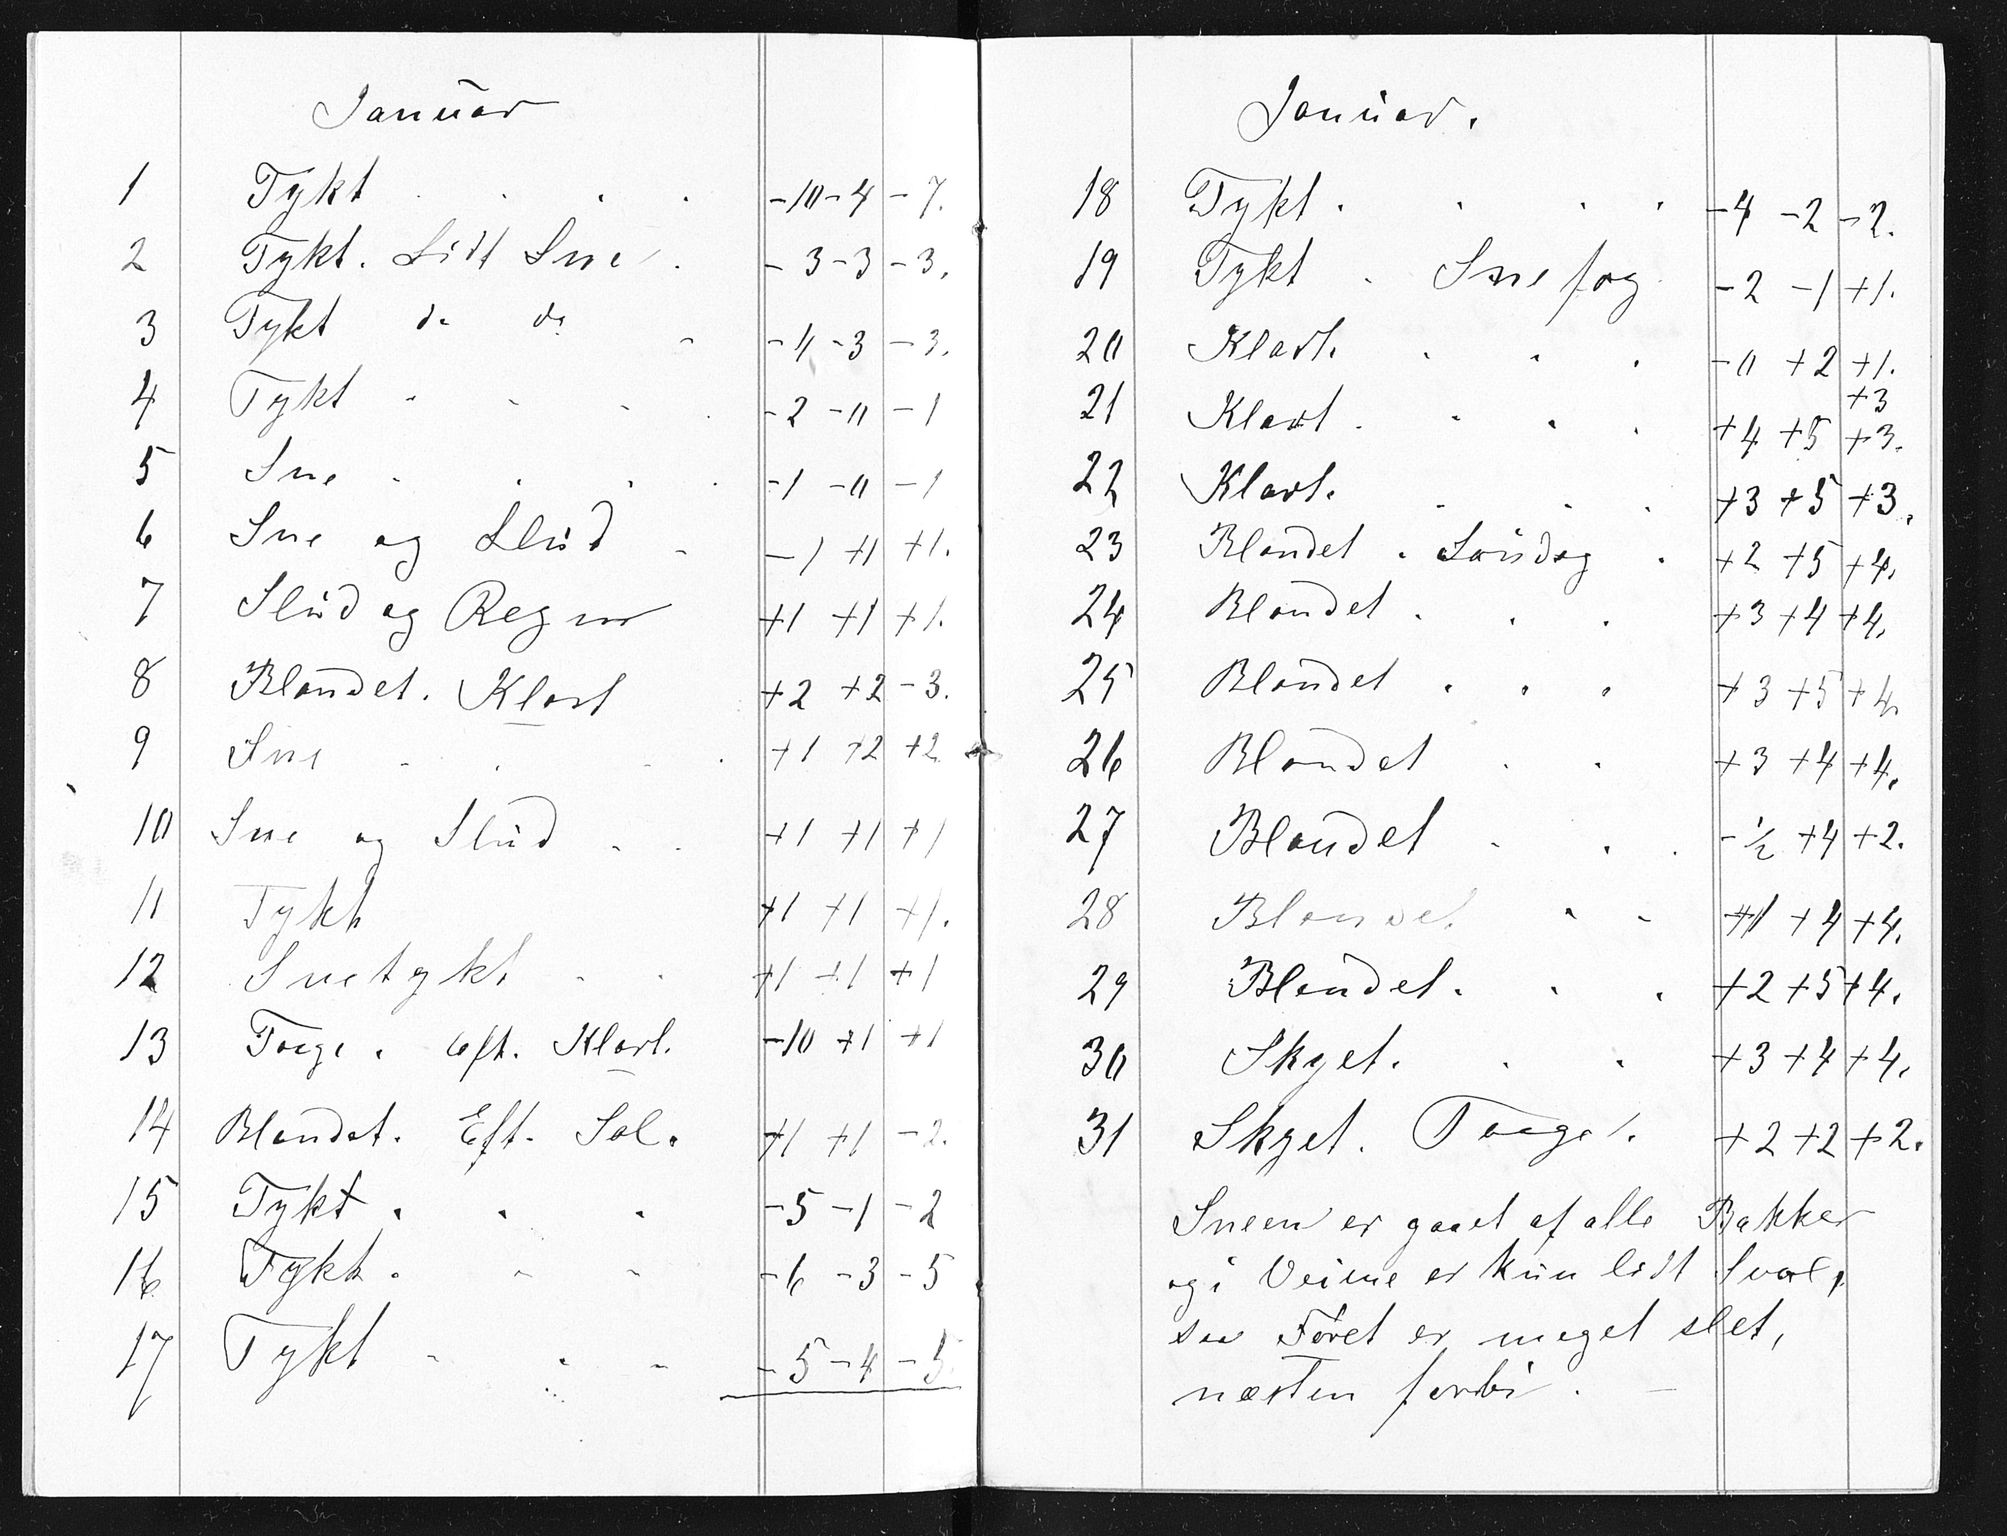 Januar
1 Tykt . . . . -10 -4 -7.
2 Tykt. Lidt Sne . -3 -3 -3.
3 Tykt do do - -4 -3 -3.
4 Tykt - - - . -2 -0 -1
5 Sne - . . . -1 -0 -1
6 Sne og Slud - -1 +1 +1.
7 Slud og Regn +1 +1 +1.
8 Blandet. Klart +2 +2 -3.
9 Sne - . - . +1 +2 +2
10 Sne og Slud - . +1 +1 +1
11 Tykt +1 +1 +1.
12 Snetykt - . +1 +1 +1
13 Taage. Eft. Klart. -10 +1 +1
14 Blandet. Eft. Sol. +1 +1 -2.
15 Tykt . . . -5 -1 -2
16 Tykt. - - -6 -3 -5
17 Tykt - . - -5 -4 -5
Januar.
18 Tykt . . . . -4 -2 -2.
19 Tykt . Snefog -2 -1 +1.
20 Klart. . . . -0 +2 +1.
+3
21 Klart . . . . +4 +5 +3.
22 Klart. . . . +3 +5 +3.
23 Blandet . Søndag . +2 +5 +4.
24 Blandet . . . +3 +4 +4.
25 Blandet . . . +3 +5 +4.
26 Blandet . . +3 +4 +4.
27 Blandet . . . -½ +4 +2.
28 Blandet . - +1 +4 +4.
29 Blandet. . . +2 +5 +4.
30 Skyet. . . +3 +4 +4.
31 Skyet. Taage. +2 +2 +2.
Sneen er gaaet af alle Bakker
og i Veiene er kun lidt
saa Føret er meget slet,
næsten forbi. -